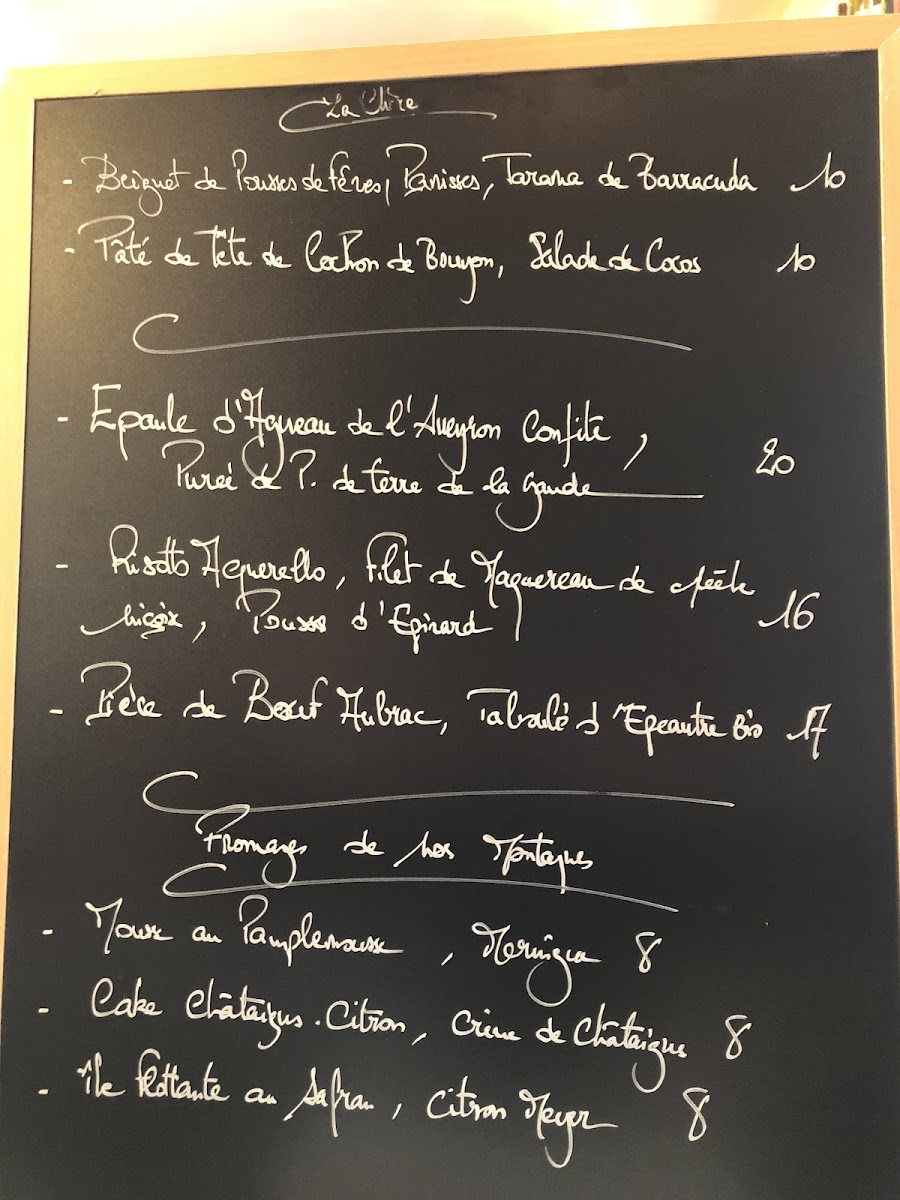 - Beignet de Pousses de fèves, Panisses, Tarama de Barracuda 10
- Pâté de Tête de Cochon de Bouyon, Salade de Cocos 10
- Epaule d'Agneau de l'Aveyron Confite,
Purée de P. de terre de la Gaude 20
- Risotto Aquerello, Filet de Maquereau de pêche
Niçoise, Pousse d'Epinard 16
- Pièce de Boeuf Aubrac, Taboulé d'Epeautre Bio 17
Fromages de nos Montagnes
- Mousse au Pamplemousse, Meringue 8
- Cake Châtaignes.Citron, Crème de Châtaignes 8
- île flottante au Safran, Citron Meyer 8